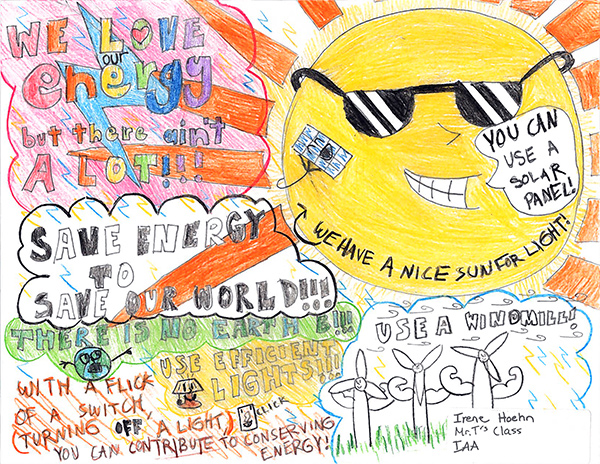 WE LOVE
our
energy
but there ain't
A LOT!!!
YOU CAN
USE A
SOLAR
PANEL!
WE HAVE A NICE SUN FOR LIGHT!
SAVE ENERGY
TO
SAVE OUR WORLD!!!
THERE IS NO EARTH B!!!
USE EFFICIENT
LIGHTS!!!
WITH A FLICK
OF A SWITCH,
(TURNING OFF A LIGHT)
CLICK
YOU CAN CONTRIBUTE TO CONSERVING
ENERGY!
USE A WINDMILL!
Irene Hoehn
Mr.T's Class
IAA